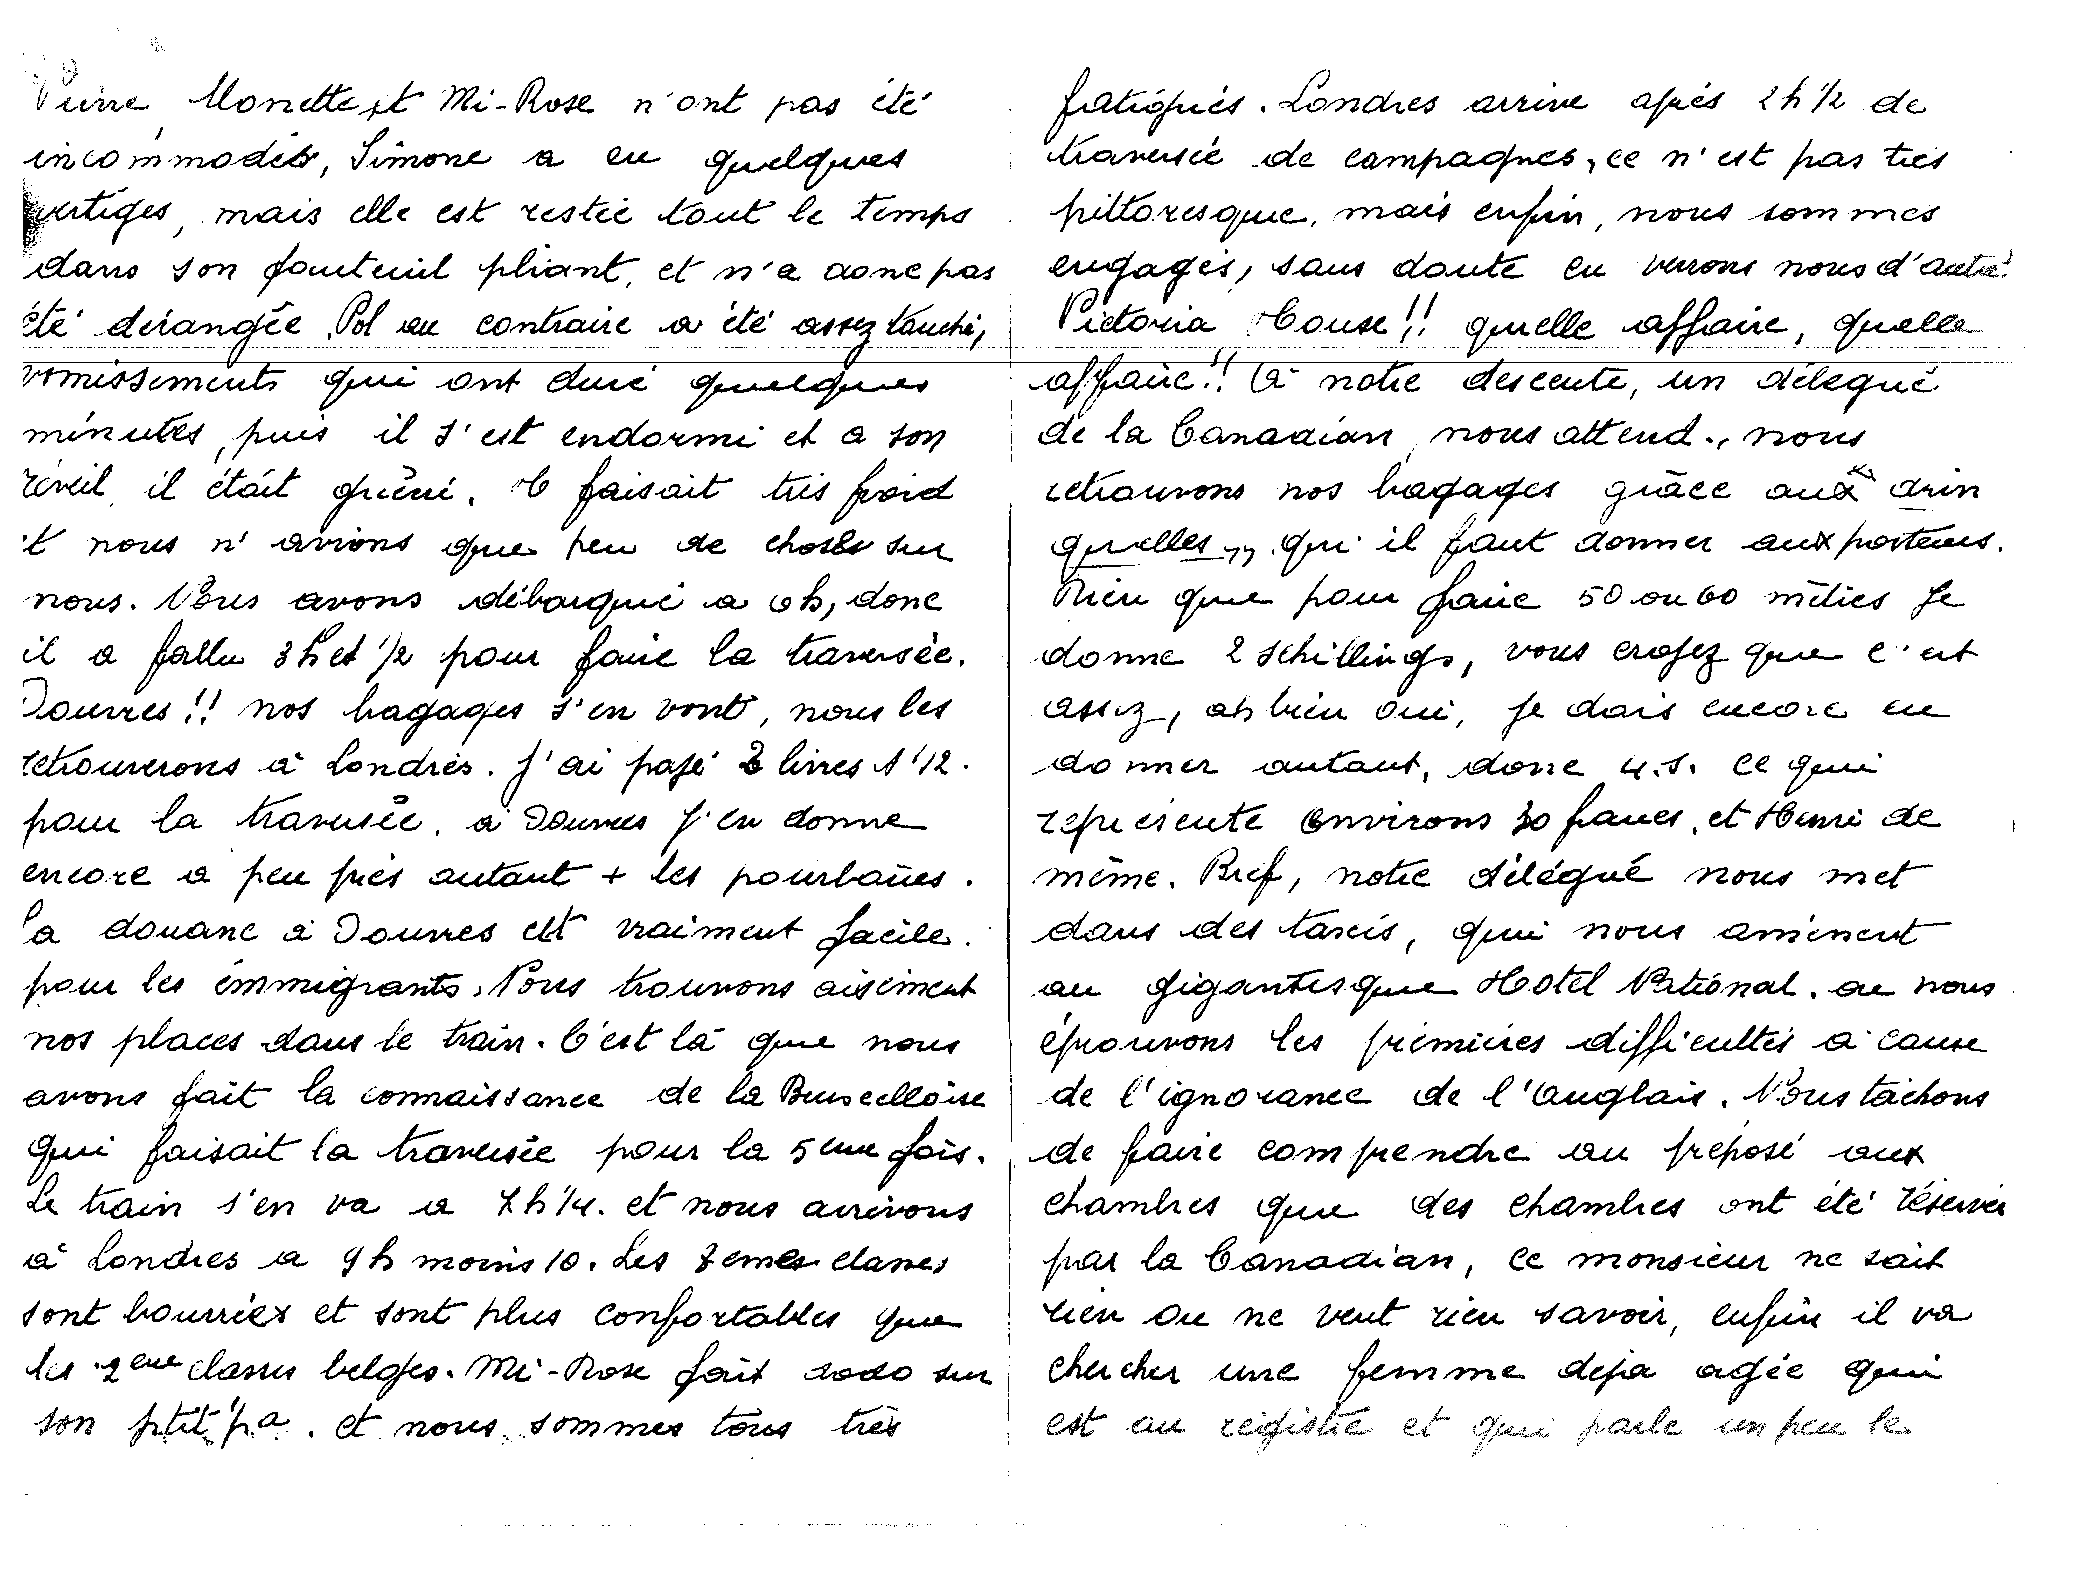 Pierre, Monette et Mi-Rose n'ont pas été
incommodés, Simone a eu quelques
vertiges, mais elle est restée tout le temps
dans son fauteuil pliant, et n'a donc pas
été dérangée. Pol au contraire a été assez touché,
vomissements qui ont duré quelques
minutes, puis il s'est endormi et a son
réveil, il était guéri. Il faisait très froid
et nous n'avions que peu de choses sur
nous. Nous avons débarqué a 6h, donc
il a fallu 3h et 1/2 pour faire la traversée.
Douvres!! nos bagages s'en vont, nous les
retrouverons à Londres. J'ai payé 2 livres 1'12.
pour la traversée. a Douvres j'en donne
encore a peu près autant + les pourboires.
La douane à Douvres est vraiment facile.
pour les émmigrants. Nous trouvons aisément
nos places dans le train. C'est là que nous
avons fait la connaissance de la Bruxelloise
qui faisait la traversée pour la 5eme fois.
Le train s'en va a 7h 1/4. et nous arrivons
à Londres a 9h moins 10. Les 3emes classes
sont bourrées et sont plus confortables que
les 2eme classes belges. Mi-Rose fait dodo sur
son ptit pa. et nous sommes tous très
fatigués. Londres arrive après 2h 1/2 de
traversée de campagnes, ce n'est pas très
pittoresque, mais enfin, nous sommes
engagés, sans doute en verrons nous d'autre.
Victoria House!! quelle affaire, quelle
affaire!! à notre descente, un délégué
de la Canadian, nous attend., nous
retrouvons nos bagages grâce aux drin
quelles,, qu'il faut donner aux porteurs.
Rien que pour faire 50 ou 60 mètres je
donne 2 schillings, vous croyez que c'est
assez, ah bien oui, je dois encore en
donner autant, donc 4.s. ce qui
représente environs 30 francs, et Henri de
même. Bref, notre délégué nous met
dans des taxis, qui nous amènent
au gigantesque Hotel National. ou nous
éprouvons les premières difficultés a cause
de l'ignorance de l'anglais. Nous tâchons
de faire comprendre au préposé aux
chambres que des chambres ont été réserver
par la Canadian, ce monsieur ne sait
rien ou ne veut rien savoir, enfin il va
chercher une femme deja agée qui
est au régistre et qui parle un peu le